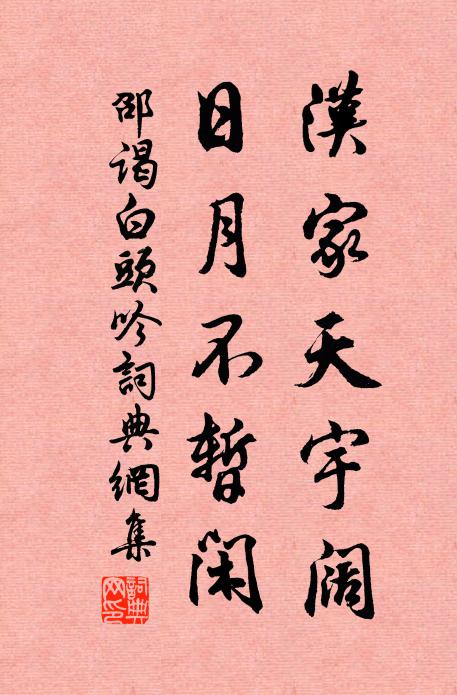 漢家天宇闊
日月不暫閑
邵谒白頭吟詞典網集
詞典網印